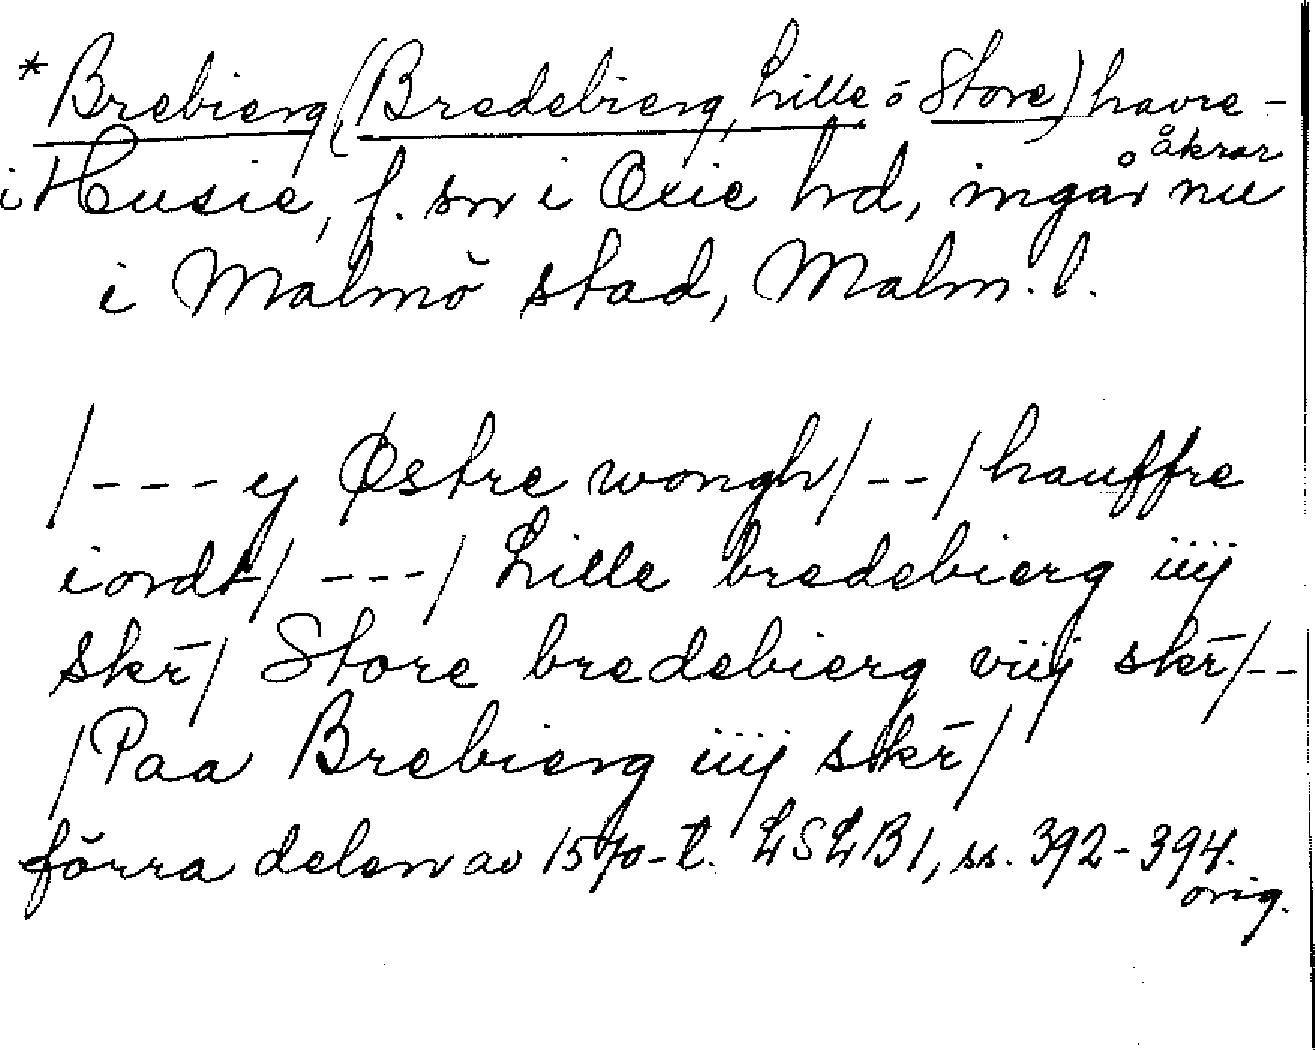 *Brebierg (Bredebierg, Lille o Store) havre-
åkrar
i Husie, f. sn i Oxie hd, ingår nu
i Malmö stad, Malm. l.
/--- y Østre wongh/--/hauffre
iordt/ ---/ Lille bredebierg iiij
skr̄/ Store bredebierg viij skr̄/--
/Paa Brebierg iiij skr̄/
förra delen av 1570-t. LSLB1, ss. 392-394.
orig.